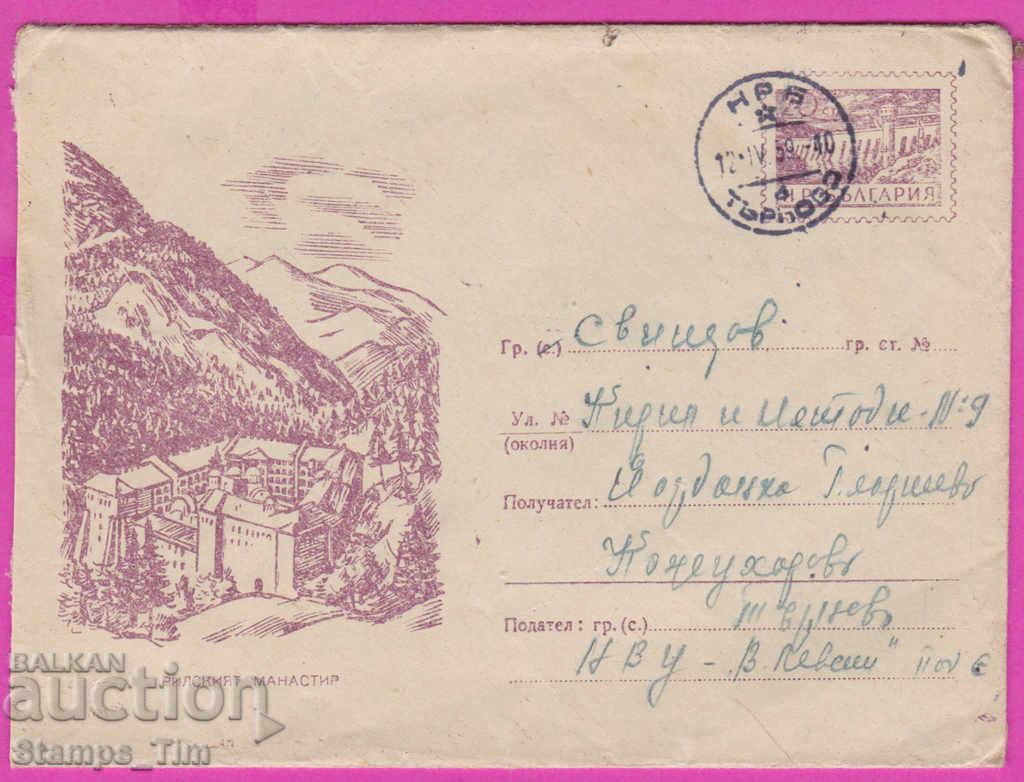 НРБ
12·IV 59-·40
4
ТЪРНОВО
НР БЪЛГАРИЯ
Гр. (с.) Свищов гр. ст. №
Ул. № Кирил и Методи - №9
(околия)
Получател: Йорданка Георгиева
Кожеухарова
Подател: гр. (с.) Търново
НВУ - „В. Левски"
РИЛСКИЯТ МАНАСТИР
BALKAN
auction
Stamps_Tim